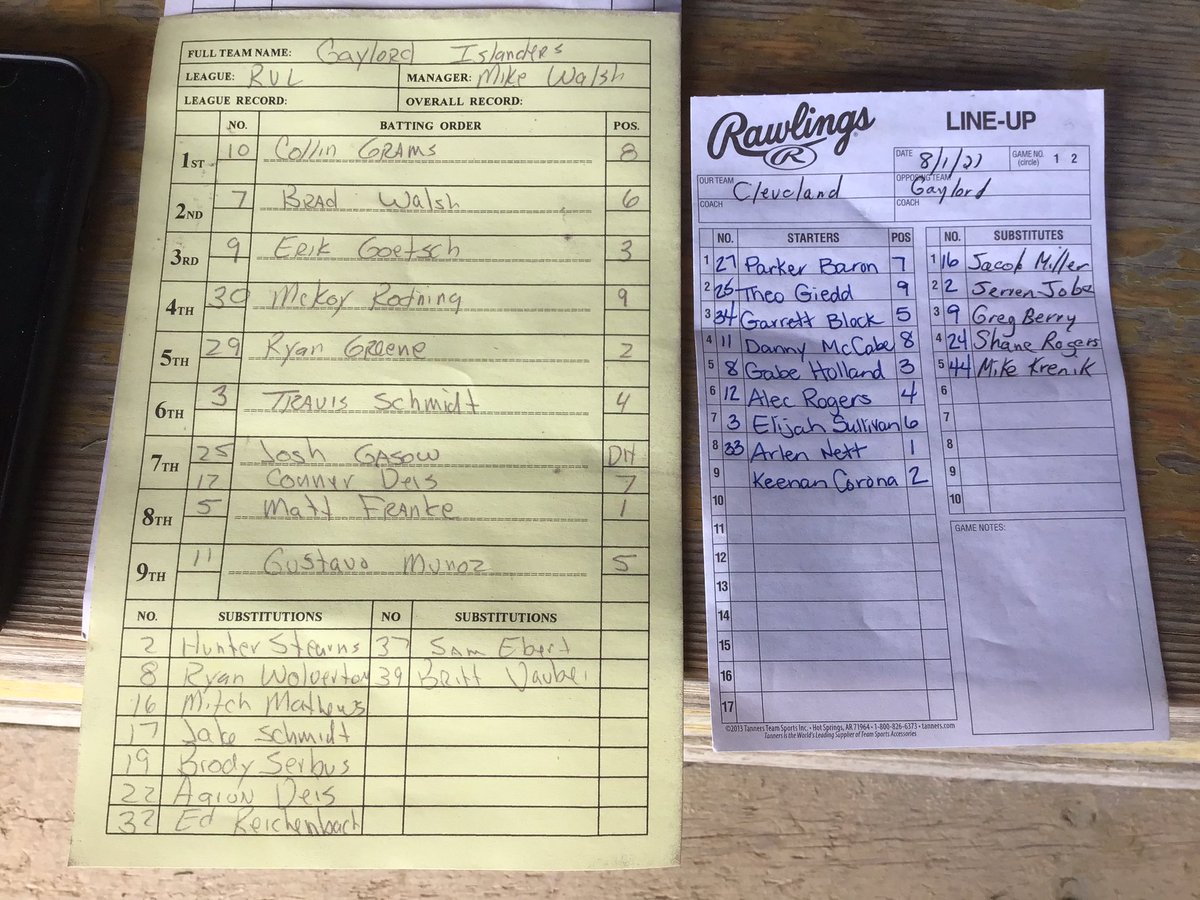 FULL TEAM NAME: Gaylord Islanders
LEAGUE: RVL MANAGER: Mike Walsh
LEAGUE RECORD: OVERALL RECORD:
NO. BATTING ORDER POS.
1ST 10 Collin GRAMS 8
2ND 7 BRAD Walsh 6
3RD 9 Erik Goetsch 3
4TH 30 McKoy Rodning 9
5TH 29 Ryan Greene 2
6TH 3 TRAVIS Schmidt 4
7TH 25 Josh GASOW DH
Conner Deis 7
8TH 5 Matt FRANKE 1
9TH 11 Gustavo Munoz 5
NO. SUBSTITUTIONS NO SUBSTITUTIONS
2 Hunter Stearns 37 Sam Ebert
8 Ryan Wolverton 39 Britt
16 Mitch Mathews
17 Jake Schmidt
19 Brody Serbus
22 Aaron Deis
32 Ed Reichenbach
Rawlings
R
LINE-UP
DATE 8/1/21 GAME NO. (circle) 1 2
OUR TEAM Cleveland OPPOSING TEAM Gaylord
COACH COACH
NO. STARTERS POS
1 27 Parker Baron 7
2 25 Theo Giedd 9
3 34 Garrett Block 5
4 11 Danny McCabe 8
5 8 Gabe Holland 3
6 12 Alec Rogers 4
7 3 Elijah Sullivan 6
8 33 Arlen Nett 1
9 Keenan Corona 2
10
11
12
13
14
15
16
17
NO. SUBSTITUTES
1 16 Jacob Miller
2 2 Jerren Jobe
3 9 Greg Berry
4 24 Shane Rogers
5 44 Mike Krenik
6
7
8
9
10
GAME NOTES:
©2013 Tanners Team Sports Inc. • Hot Springs, AR 71964 • 1-800-826-6373 • tanners.com
Tanners is the World's Leading Supplier of Team Sports Accessories